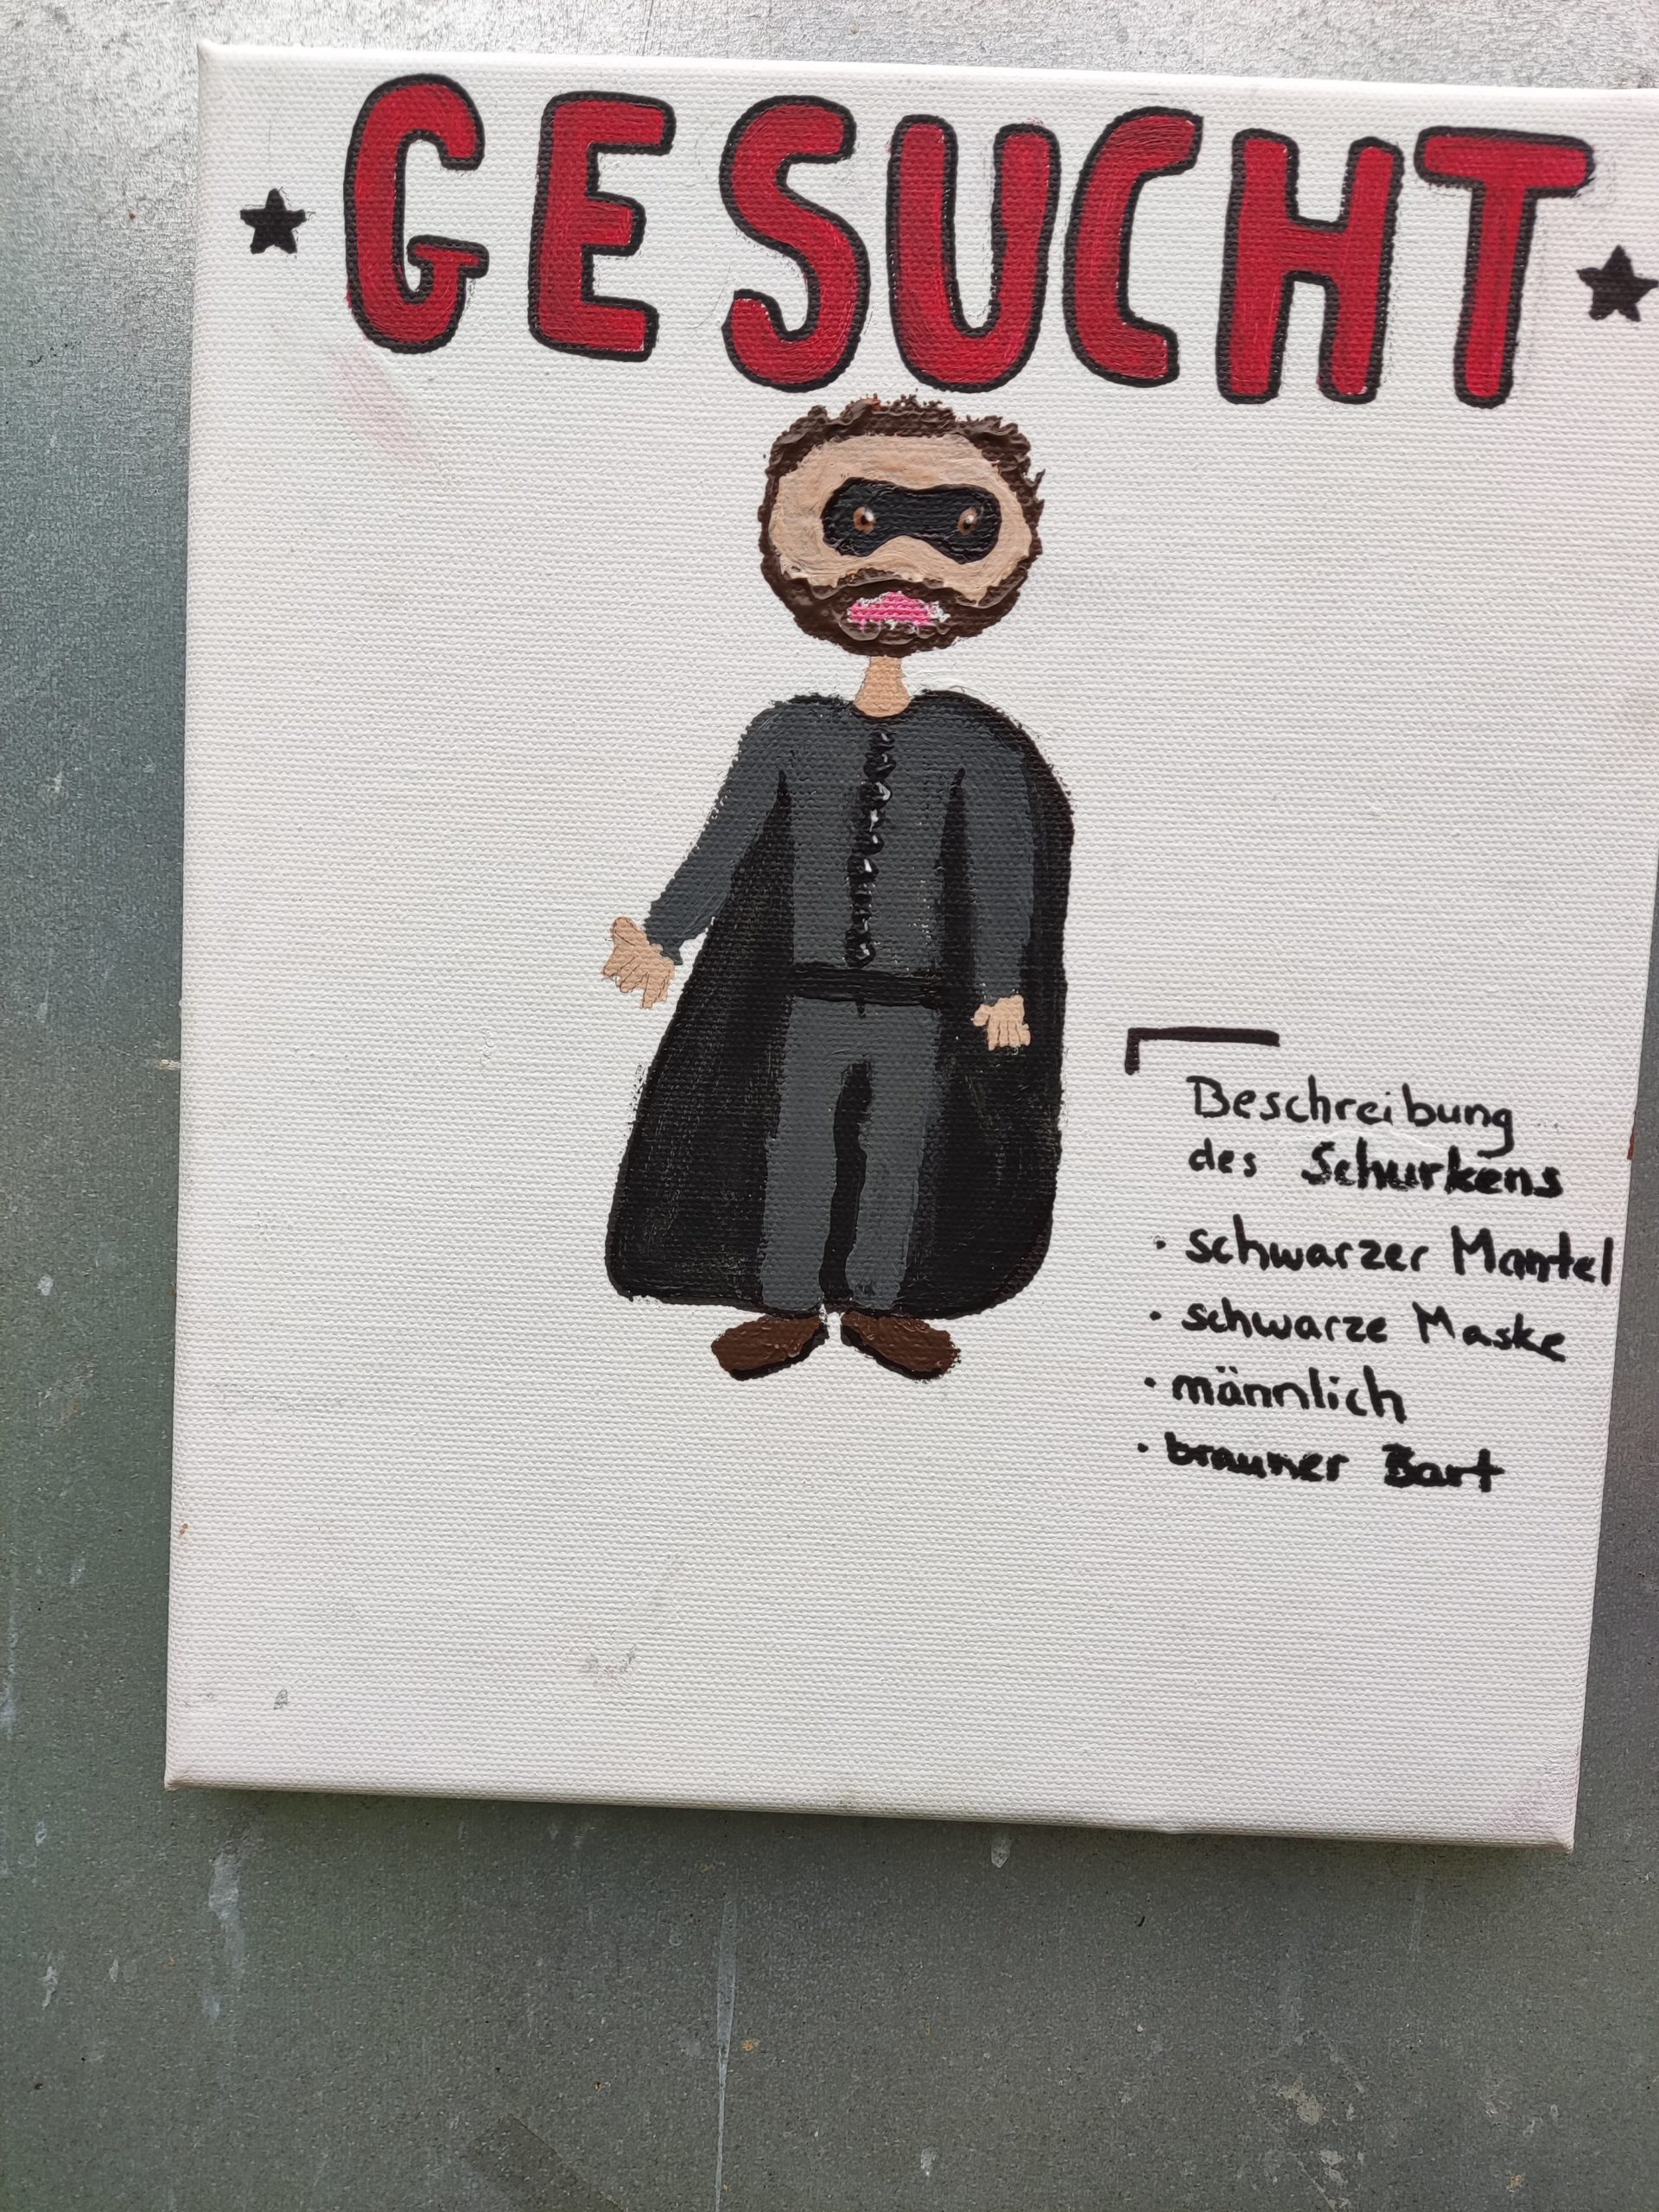 GESUCHT
Beschreibung
des Schurkens
· schwarzer Mantel
· schwarze Maske
· männlich
· brauner Bart